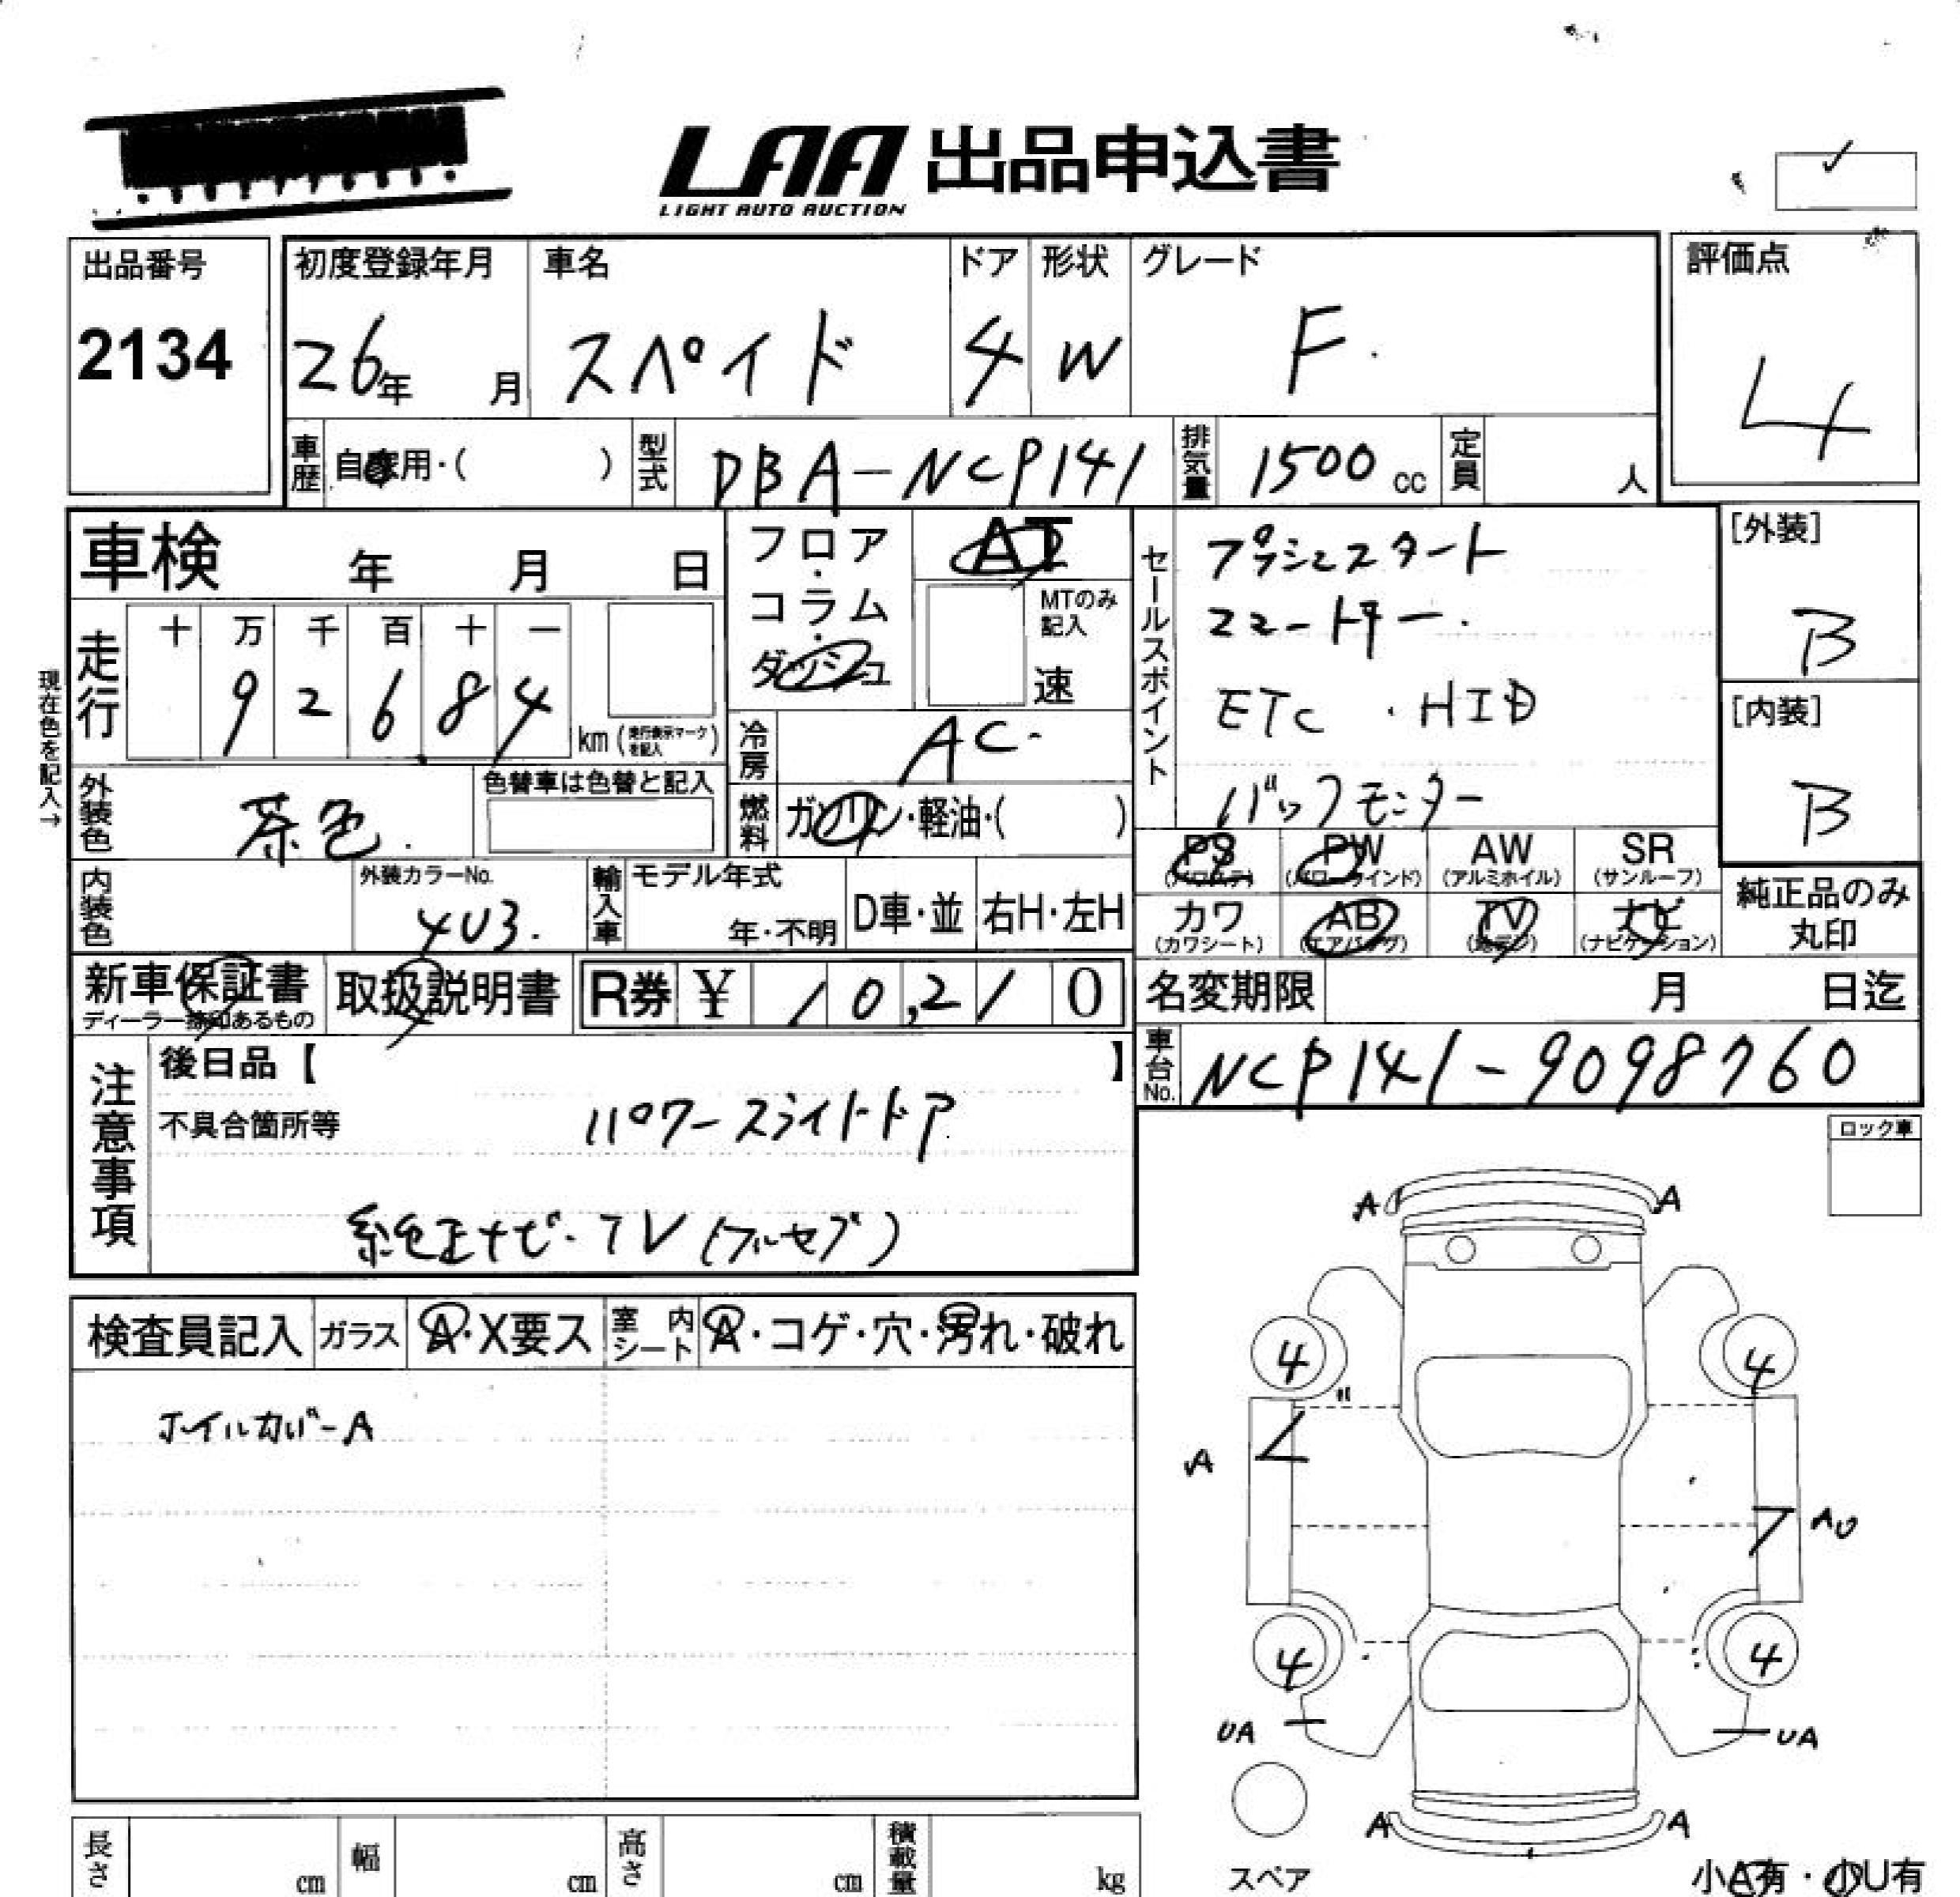 LAA 出品申込書
LIGHT AUTO AUCTION
出品番号
2134
初度登録年月
26年 月
車名
スペイド
ドア
4
形状
W
グレード
F.
評価点
4
車歴 自家用・( )
型式 DBA-NCP141
排気量 1500 cc
定員 人
車検 年 月 日
フロア・コラム・ダッシュ
AT
MTのみ記入
速
セールスポイント
プッシュスタート
スマートキー.
ETC ・HID
バックモニター
[外装]
B
[内装]
B
現在色を記入→
走行
十 万 千 百 十 一
9 2 6 8 4
km (走行表示マークを記入)
冷房 AC
外装色 茶色.
色替車は色替と記入
燃料 ガソリン・軽油・( )
PS (パワステ) PW (パワーウインド) AW (アルミホイル) SR (サンルーフ)
カワ (カワシート) AB (エアバッグ) TV (地デジ) ナビ (ナビゲーション)
純正品のみ丸印
内装色
外装カラーNo.
4U3.
輸入車
モデル年式
年・不明
D車・並
右H・左H
新車保証書
ディーラー捺印あるもの
取扱説明書
R券 ¥ 10,210
名変期限 月 日迄
車台No. NCP141-9098760
注意事項
後日品【 】
不具合箇所等
パワースライドドア
純正ナビ・TV(フルセグ)
ロック車
検査員記入
ガラス A・X要ス
室内シート A・コゲ・穴・汚れ・破れ
ホイルカバーA
A A
4 4
A
AU
4 4
UA UA
A A
スペア
小A有・小U有
長さ cm
幅 cm
高さ cm
積載量 kg